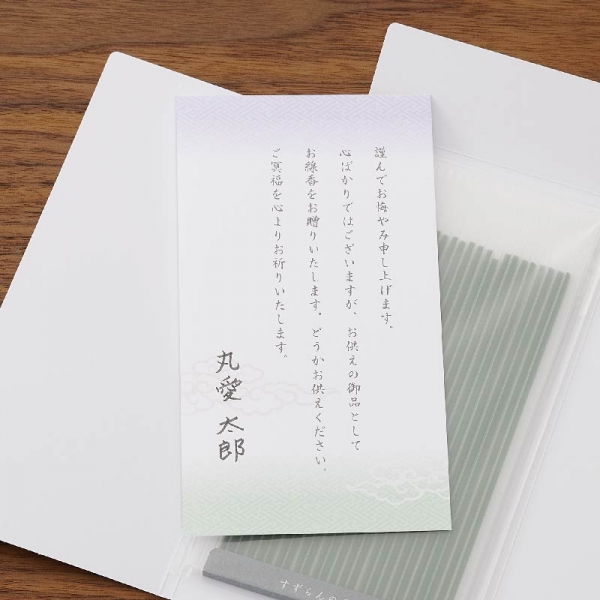 謹んでお悔やみ申し上げます。
心ばかりではございますが、お供えの御品として
お線香をお贈りいたします。どうかお供えください。
ご冥福を心よりお祈りいたします。
丸愛 太郎
すずらんの